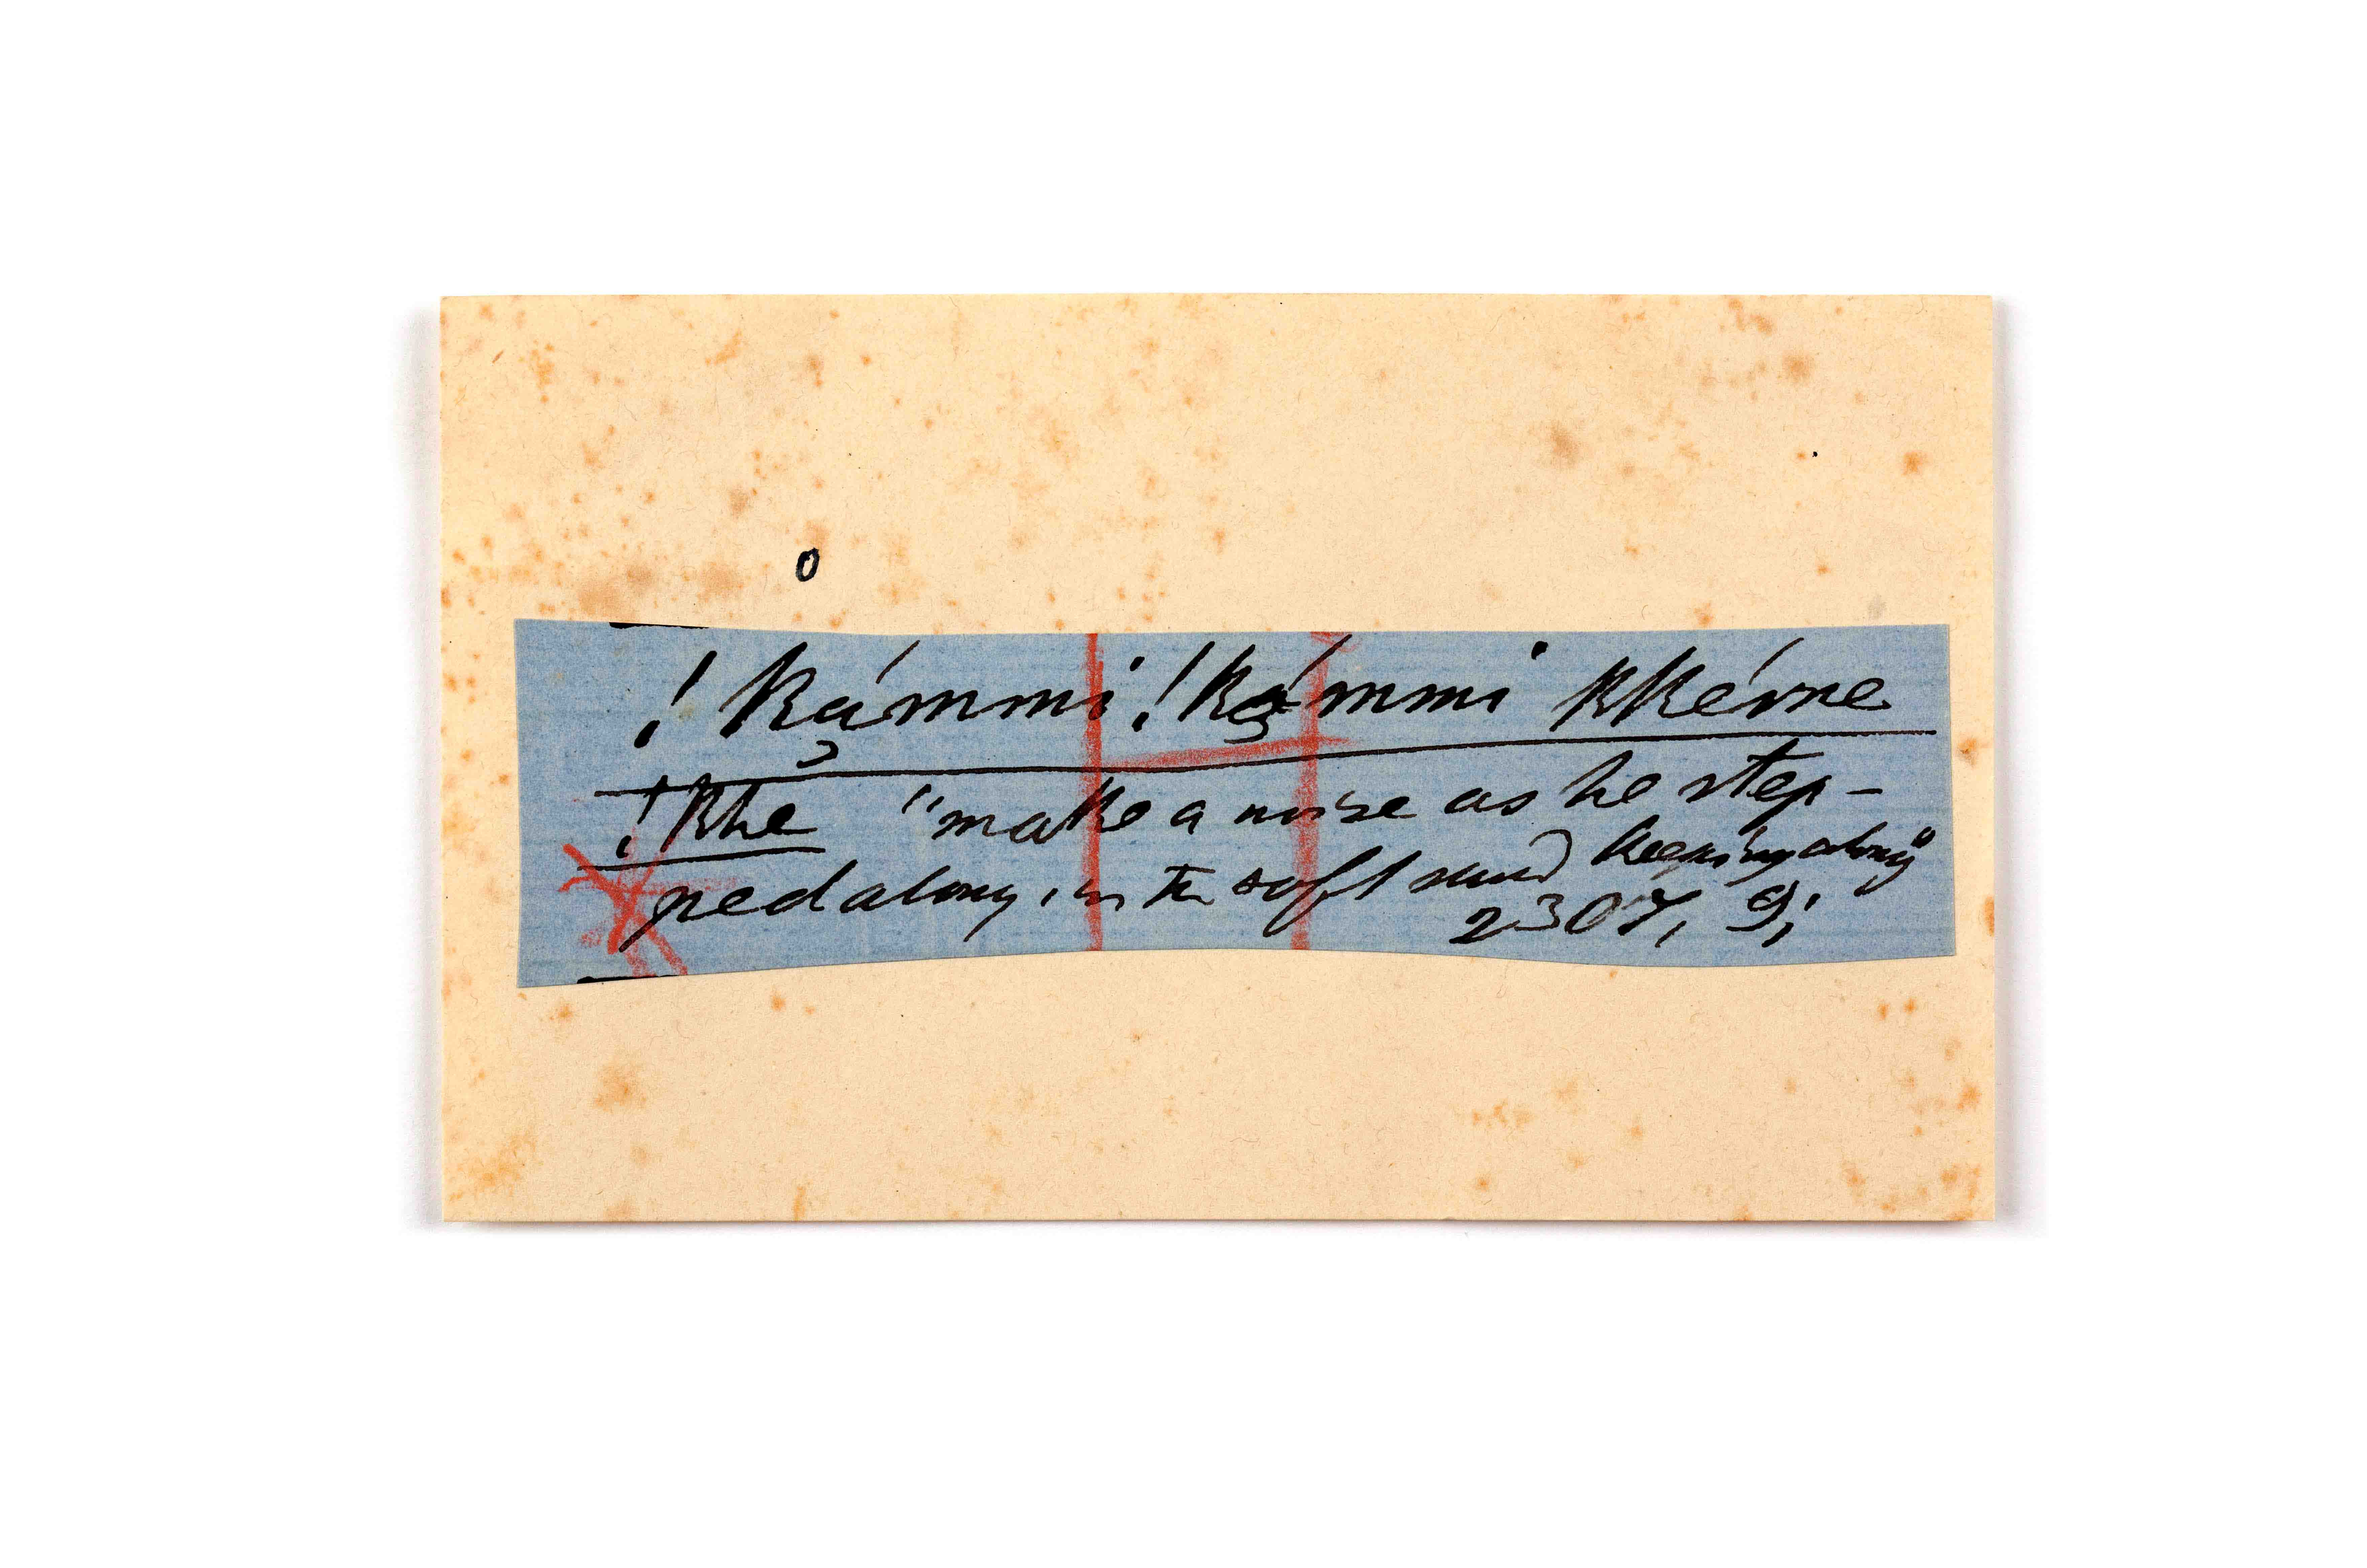 o
!ką́mmi !ką́mmi kkérre
!khe "make a noise as he step-
ped along, in the soft sand keeping along"
2307, 9;